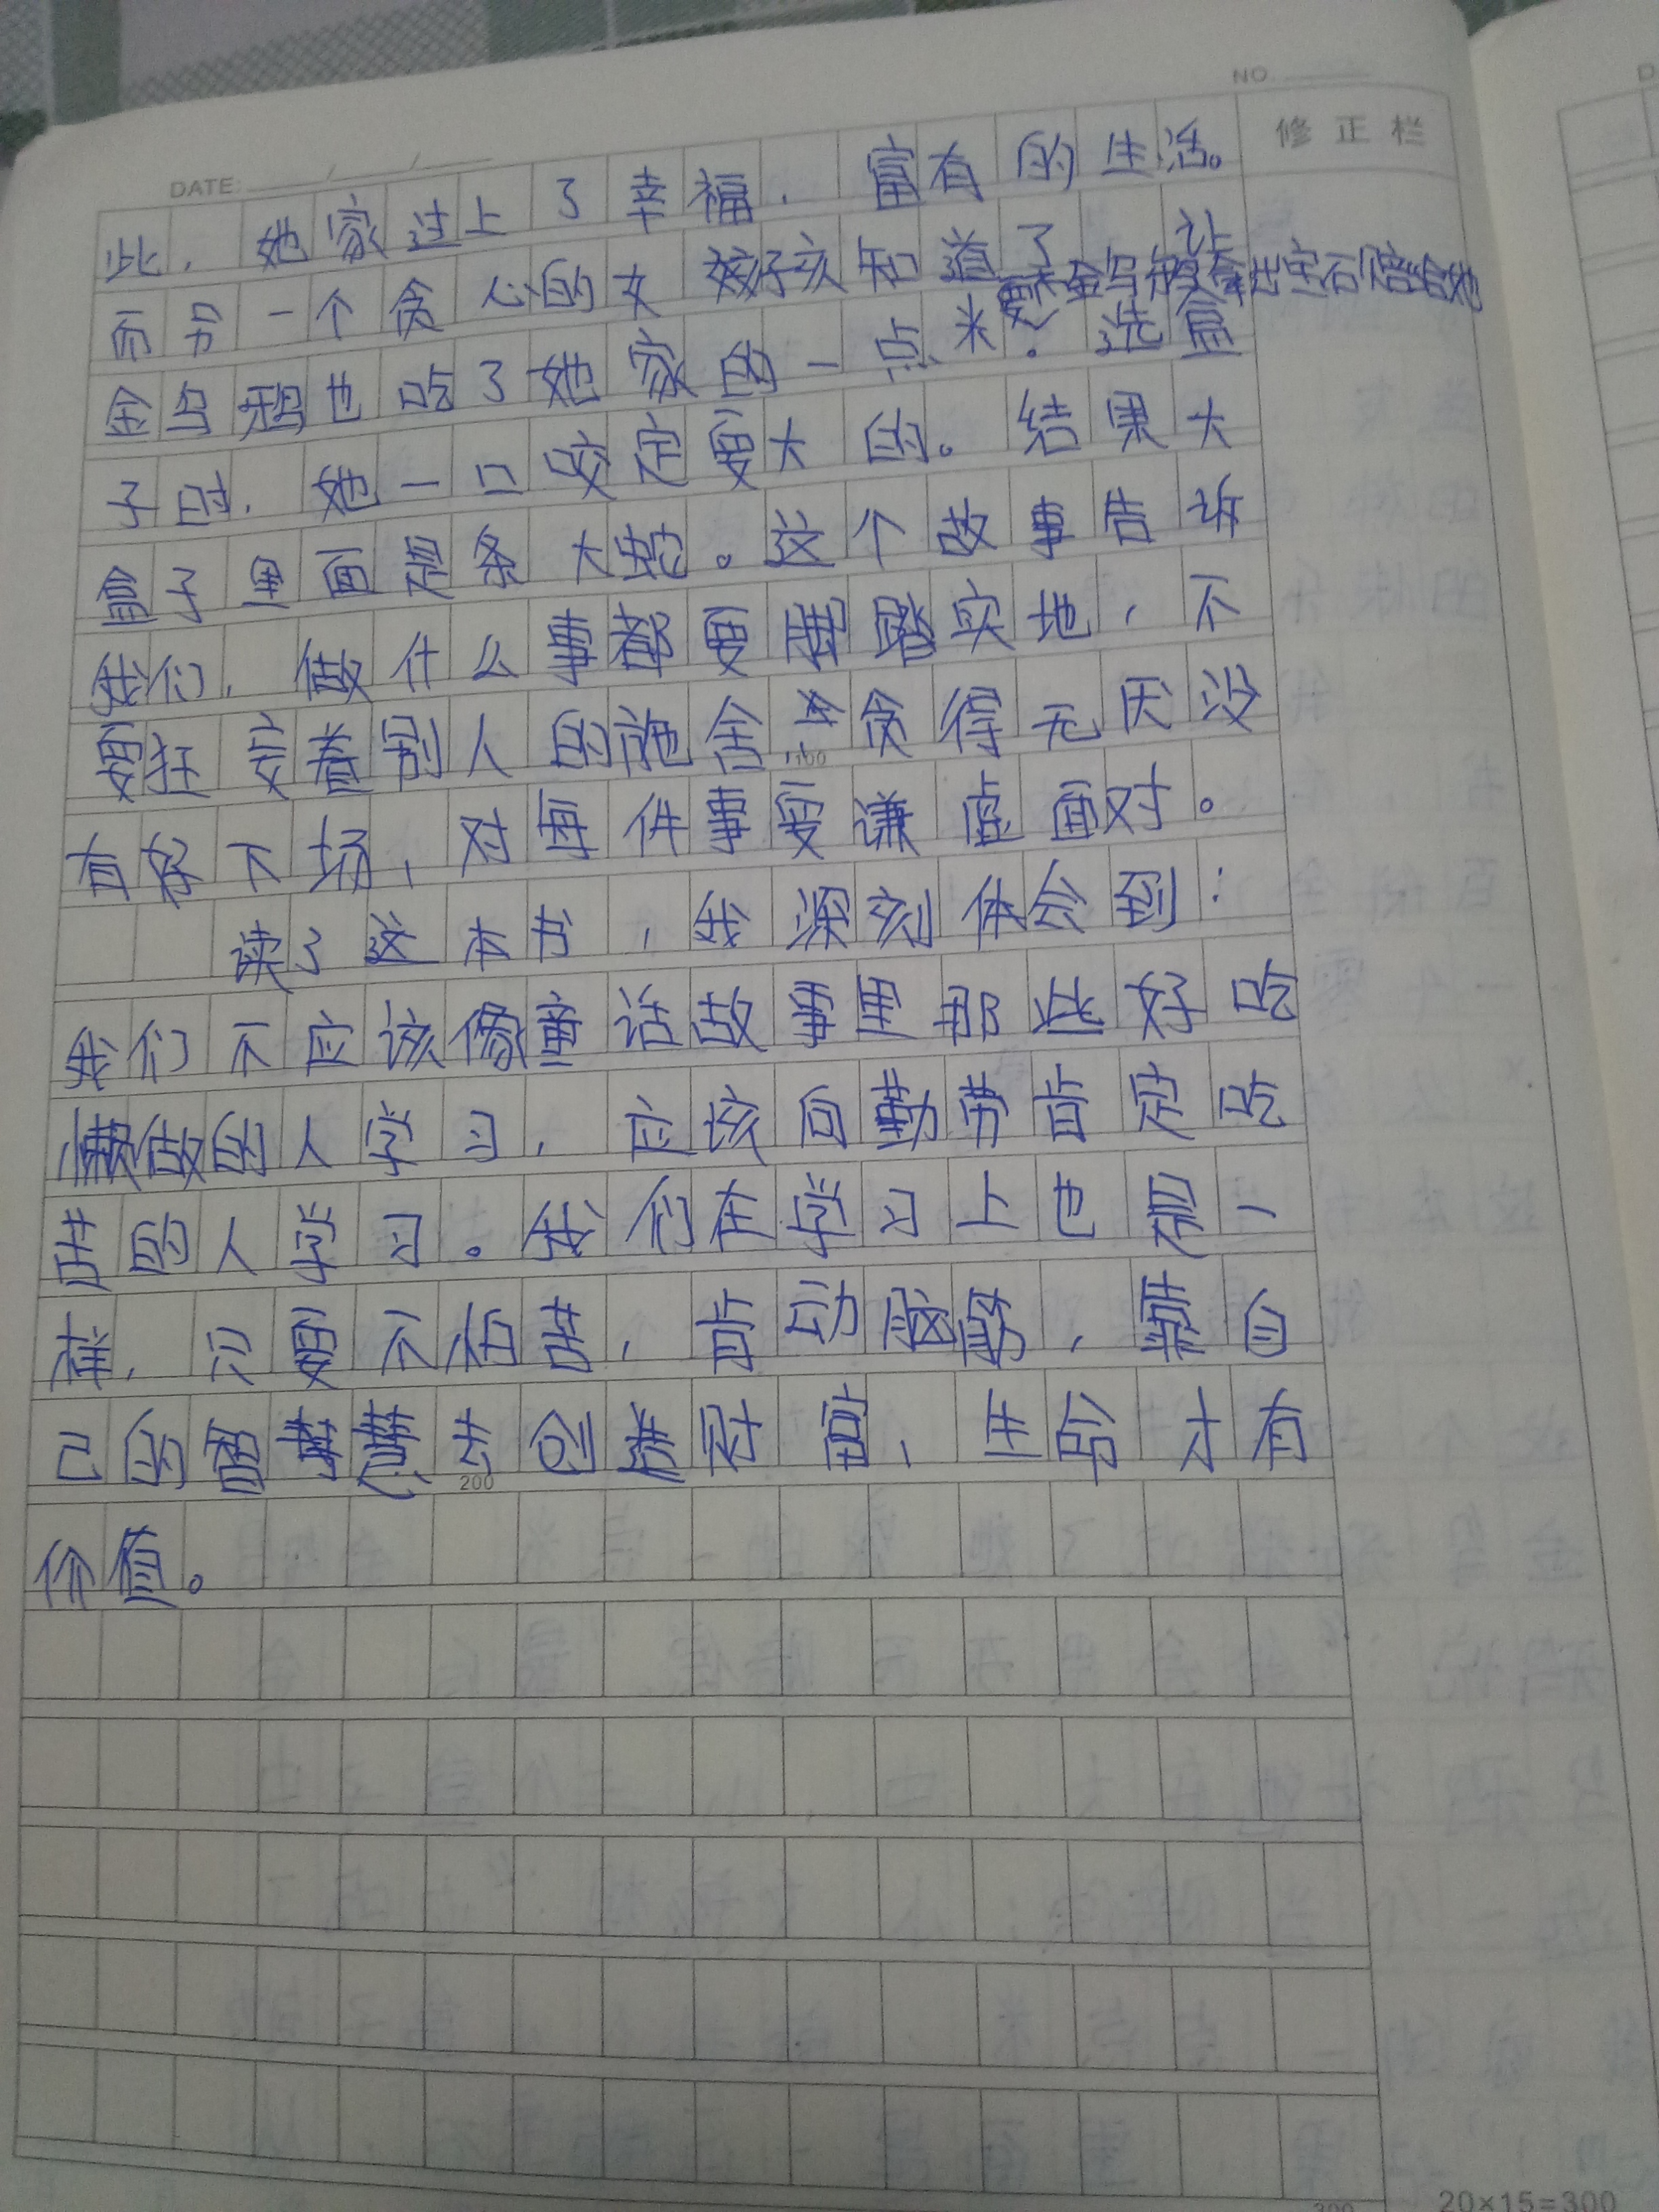 NO
修正栏
DATE / /
此，她家过上了幸福，富有的生活。
而另一个贪心的女孩知道了，让
要金乌鸦拿出宝石赔给她
金乌鸦也吃了她家的一点米。选盒
子时，她一口咬定要大的。结果大
盒子里面是条大蛇。这个故事告诉
我们，做什么事都要脚踏实地，不
要狂妄着别人的施舍，贪得无厌没
有好下场，对每件事要谦虚面对。
读了这本书，我深刻体会到：
我们不应该像童话故事里那些好吃
懒做的人学习，应该向勤劳肯定吃
苦的人学习。我们在学习上也是一
样，只要不怕苦，肯动脑筋，靠自
己的智慧去创造财富，生命才有
200
价值。
300
20×15=300